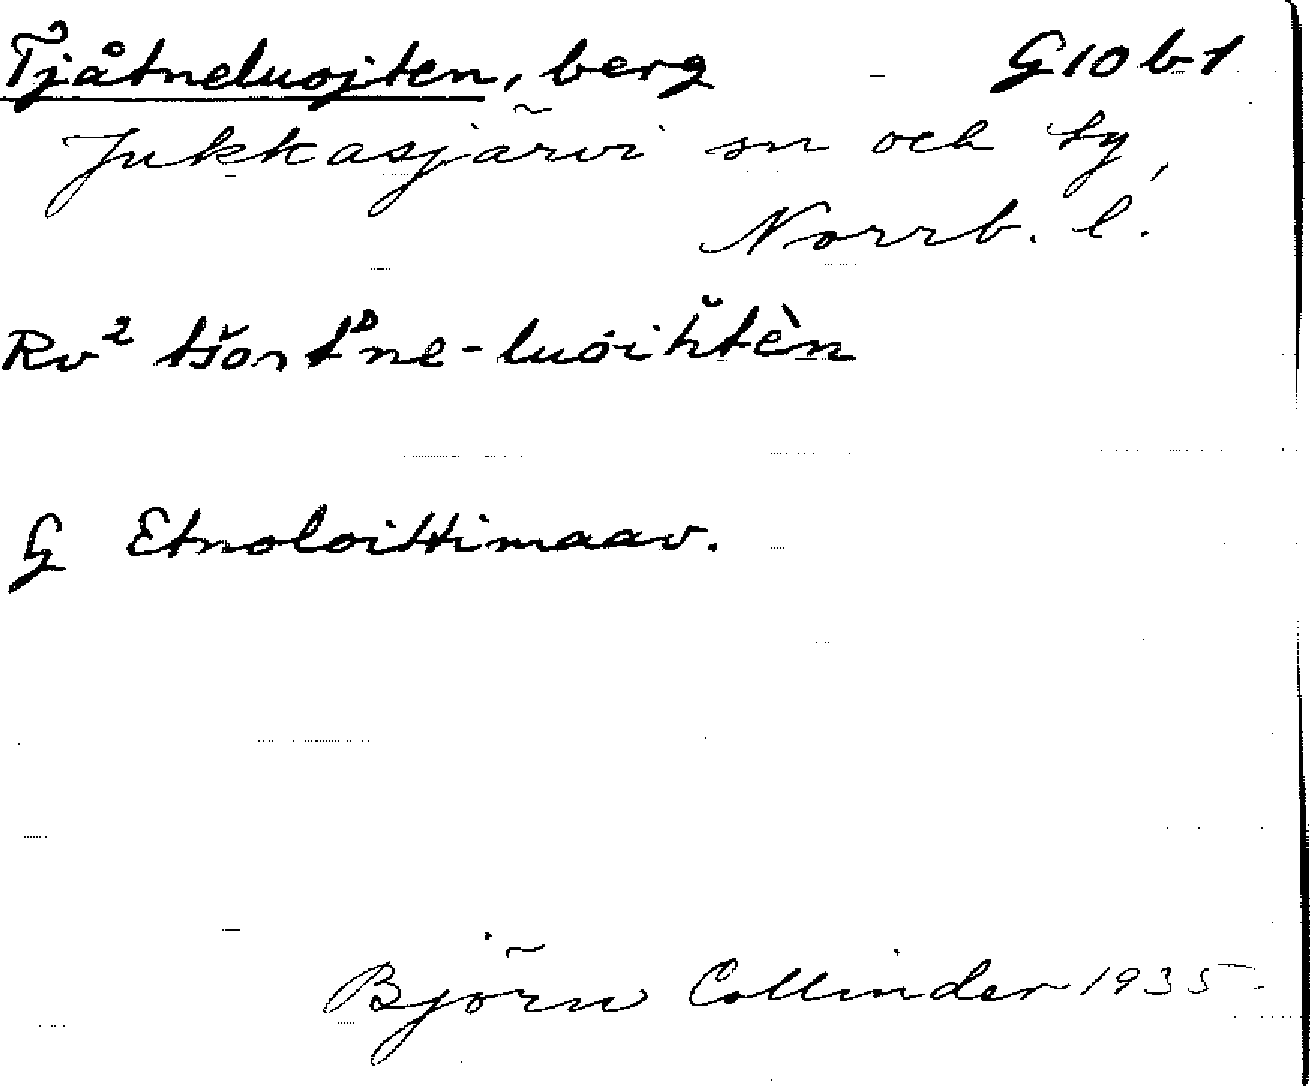 Tjåtneluojten, berg G10b1
Jukkasjärvi sn och ty,
Norrb. l.
Rv² -luoiħtèn
G Etnoloittimaav.
Björn Collinder 1935